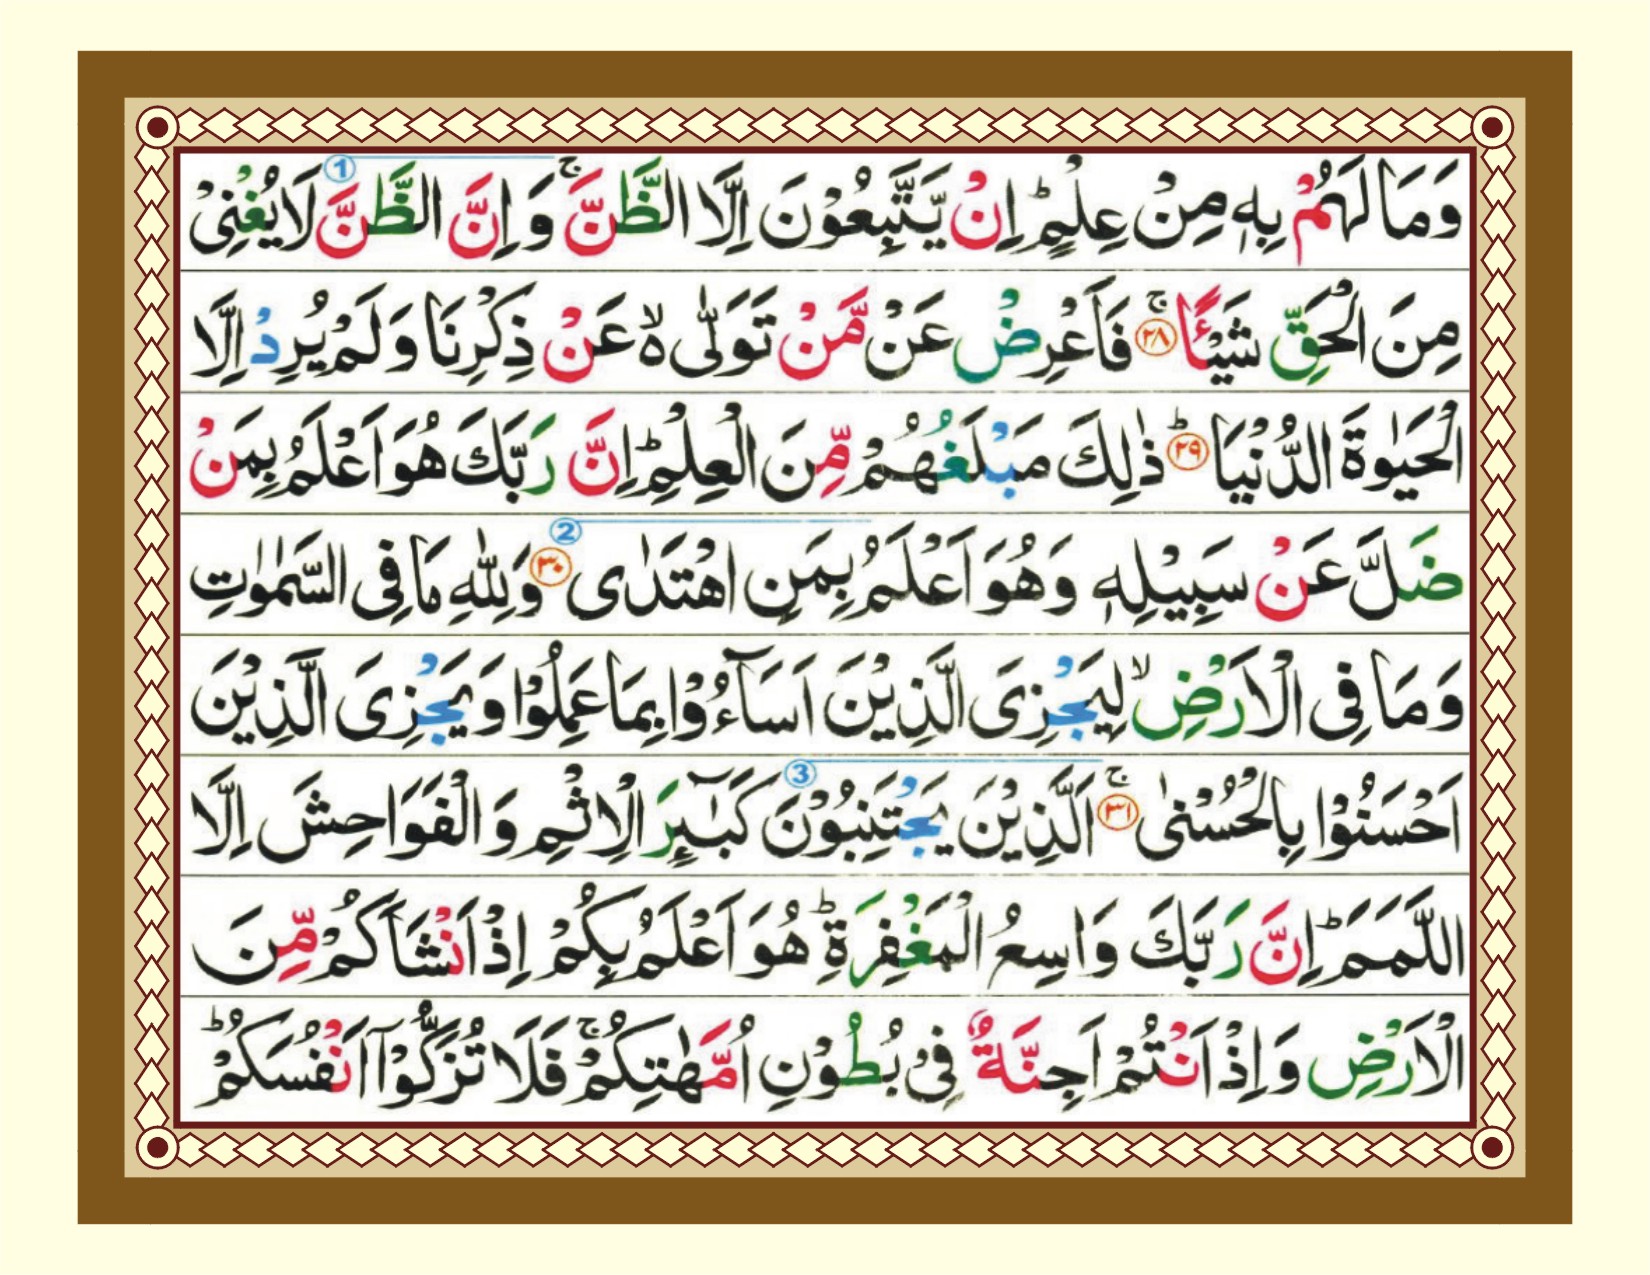 وَمَا لَهُمْ بِهٖ مِنْ عِلْمٍ ؕ اِنْ يَّتَّبِعُوْنَ اِلَّا الظَّنَّ ۚ وَ اِنَّ الظَّنَّ ① لَا يُغْنِىْ
مِنَ الْحَقِّ شَيْـًٔا ۚ ﴿٢٨﴾ فَاَعْرِضْ عَنْ مَّنْ تَوَلّٰى ۙ۬ عَنْ ذِكْرِنَا وَ لَمْ يُرِدْ اِلَّا
الْحَيٰوةَ الدُّنْيَا ؕ ﴿٢٩﴾ ذٰلِكَ مَبْلَغُهُمْ مِّنَ الْعِلْمِ ؕ اِنَّ رَبَّكَ هُوَ اَعْلَمُ بِمَنْ
ضَلَّ عَنْ سَبِيْلِهٖ وَهُوَ اَعْلَمُ بِمَنِ اهْتَدٰى ② ﴿٣٠﴾ وَلِلّٰهِ مَا فِى السَّمٰوٰتِ
وَمَا فِى الْاَرْضِ ۙ لِيَجْزِىَ الَّذِيْنَ اَسَآءُوْا بِمَا عَمِلُوْا وَ يَجْزِىَ الَّذِيْنَ
اَحْسَنُوْا بِالْحُسْنٰى ۚ ﴿٣١﴾ اَلَّذِيْنَ يَجْتَنِبُوْنَ ③ كَبٰٓٮِٕرَ الْاِثْمِ وَ الْفَوَاحِشَ اِلَّا
اللَّمَمَ ؕ اِنَّ رَبَّكَ وَاسِعُ الْمَغْفِرَةِ ؕ هُوَ اَعْلَمُ بِكُمْ اِذْ اَنْشَاَكُمْ مِّنَ
الْاَرْضِ وَ اِذْ اَنْتُمْ اَجِنَّةٌ فِىْ بُطُوْنِ اُمَّهٰتِكُمْ ۚ فَلَا تُزَكُّوْۤا اَنْفُسَكُمْ ؕ